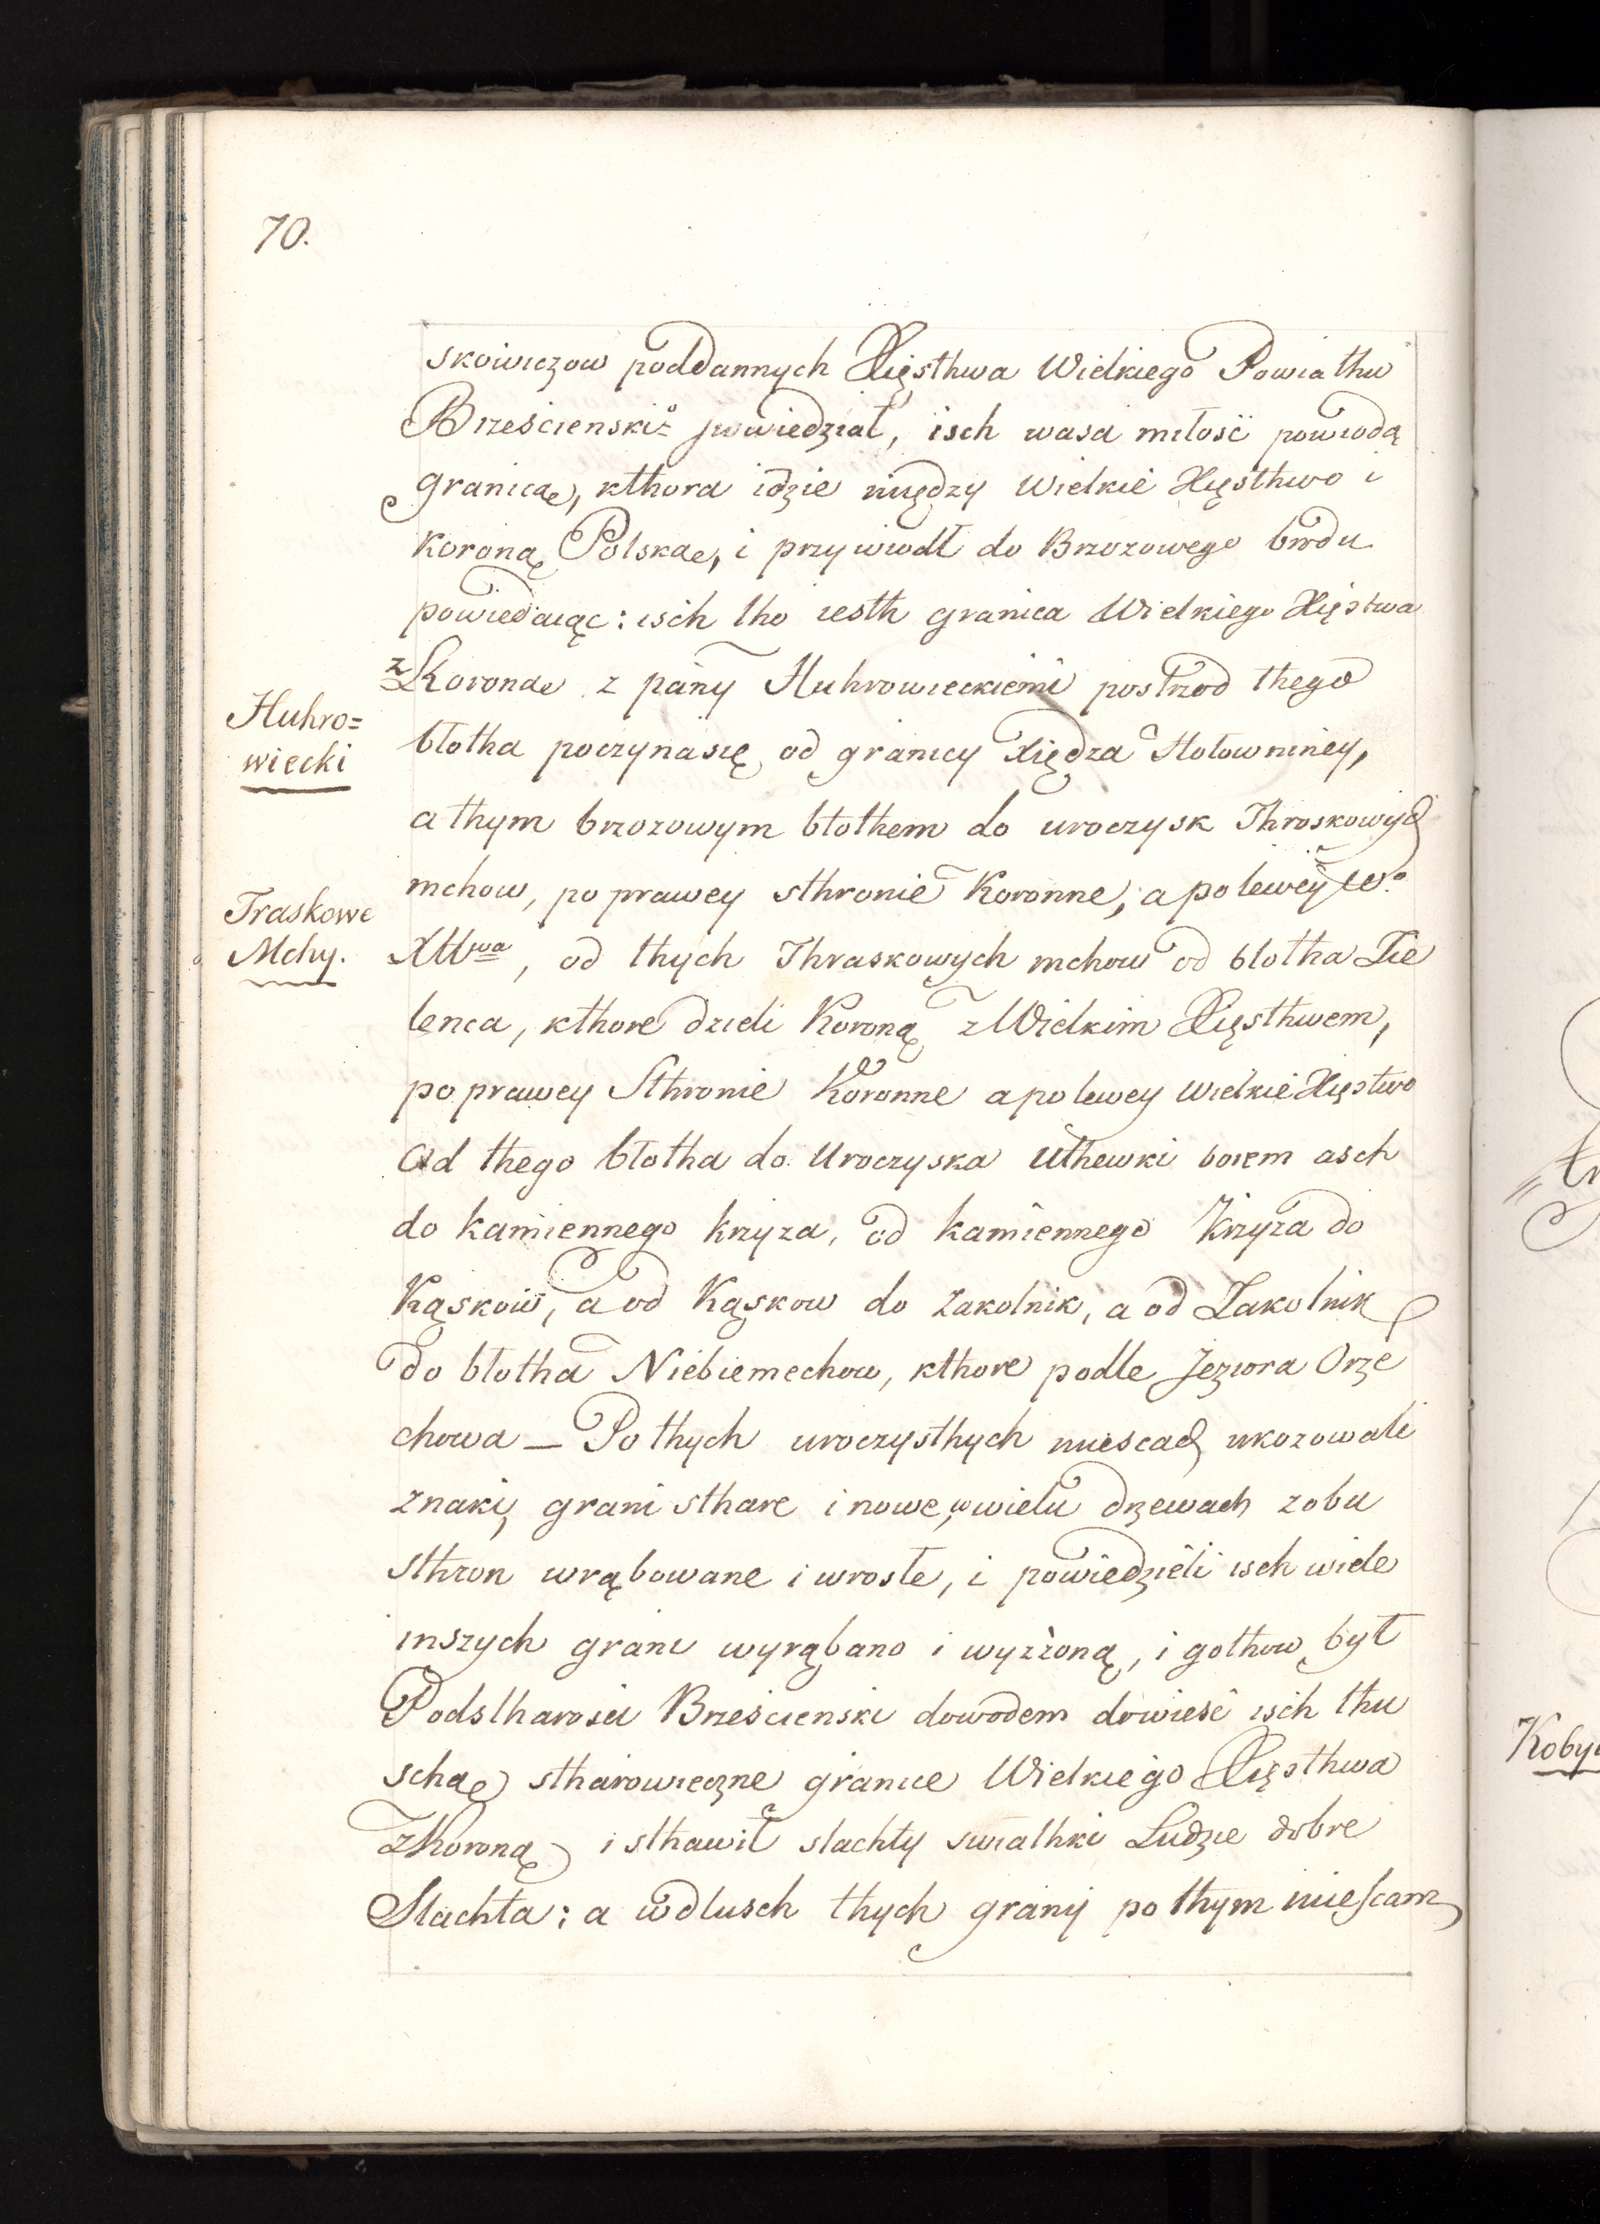 70.
skowiczow poddannych Xięsthwa Wielkiego Powiathu
Brzescienski° powiedział, isch wasa miłość powiodą
granicae, kthora idzie między Wielkie Xięsthwo i
Koroną Polskae, i przywiodł do Brzozowego brodu
powiedaiąc: isch tho iesth granica Wielkiego Xięstwa
z Koronae z pany Huhrowieckiemi postrzod thego
Huhro=
wiecki
błotha poczyna się od granicy Xiędza Hołowniney,
a thym brzozowym błothem do uroczysk Throskowych
mchow, po prawey sthronie Koronne, a po lewey W°
Traskowe
Mchy.
XLtwa, od thych Thraskowych mchow od błotha Zie
lenca, kthore dzieli Koroną z Wielkim Xięsthwem,
po prawey Sthronie Koronne a po lewey Wielkie Xięstwo
Od thego błotha do Uroczyska Uthewki borem asch
do kamiennego krzyza, od kamiennego Krzyza do
Kąskow, a od Kąskow do Zakolnik, a od Zakolnik
do błotha Niebiemechow, kthore podle Jeziora Orze
chowa — Po thych uroczysthych miescach ukozowali
znaki, grani sthare i nowe, w wielu drzewach z obu
sthron wrąbowane i wrosłe, i powiedzieli isch wiele
inszych granic wyrąbano i wyzżoną, i gothow był
Podstharosci Brzescienski dowodem dowiesć isch thu
schae stharowieczne granice Wielkiego Xięsthwa
z Koroną i sthawił slachty swiathki Ludzie dobre
Slachta: a wdlusch thych grany po thym miescam